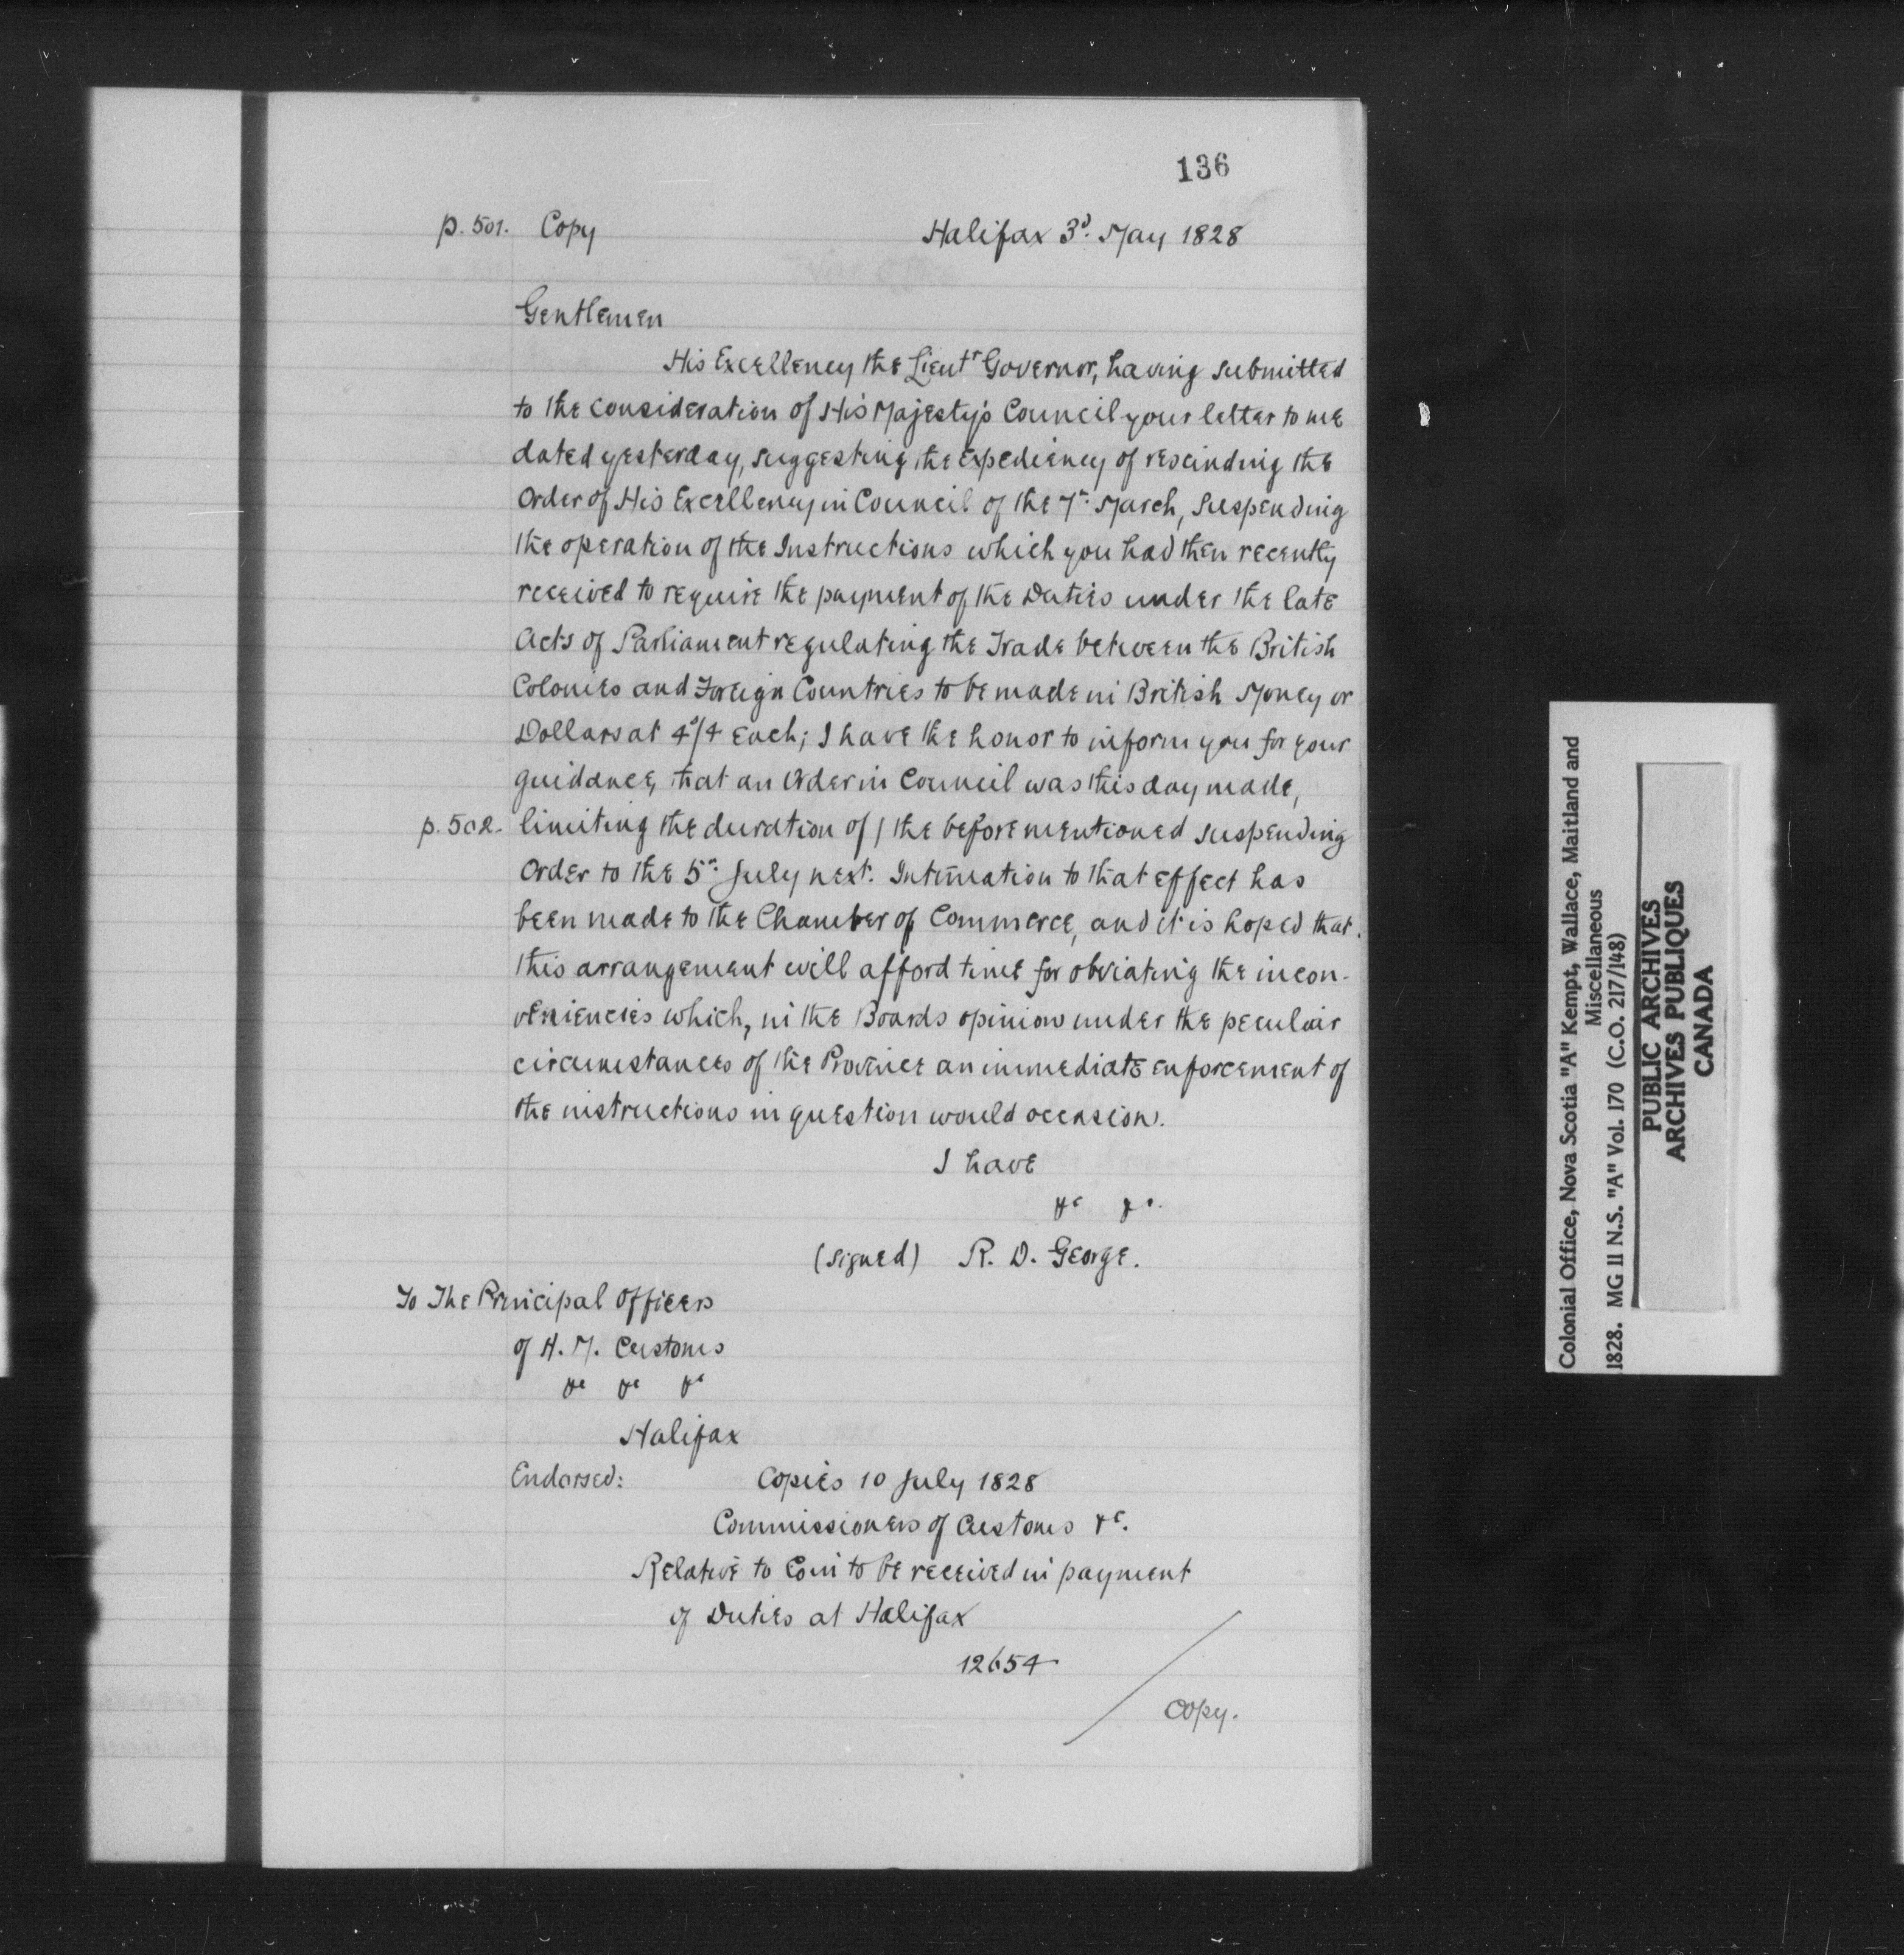 136
p. 501. Copy Halifax 3d. May 1828
Gentlemen
His Excellency the Lieutr Governor, having submitted
to the consideration of His Majesty's Council your letter to me
dated yesterday, suggesting the expediency of rescinding the
Order of His Excellency in Council of the 7th March, suspending
the operation of the Instructions which you had then recently
received to require the payment of the Duties under the late
Acts of Parliament regulating the Trade between the British
Colonies and Foreign Countries to be made in British Money or
Dollars at 4s/4 each; I have the honor to inform you for your
guidance, that an Order in Council was this day made,
p. 502. limiting the duration of / the beforementioned suspending
Order to the 5th July next. Intimation to that effect has
been made to the Chamber of Commerce, and it is hoped that.
this arrangement will afford time for obviating the incon-
veniencies which, in the Boards opinion under the peculiar
circumstances of the Province an immediate enforcement of
the instructions in question would occasion.
I have
&c &c.
(signed) R. D. George.
To The Principal Officers
of H. M. Customs
&c &c &c
Halifax
Endorsed: Copies 10 July 1828
Commissioners of Customs &c.
Relative to Coin to be received in payment
of Duties at Halifax
12654
Copy.
Colonial Office, Nova Scotia "A" Kempt, Wallace, Maitland and
Miscellaneous
1828. MG 11 N.S. "A" Vol. 170 (C.O. 217/148)
PUBLIC ARCHIVES
ARCHIVES PUBLIQUES
CANADA